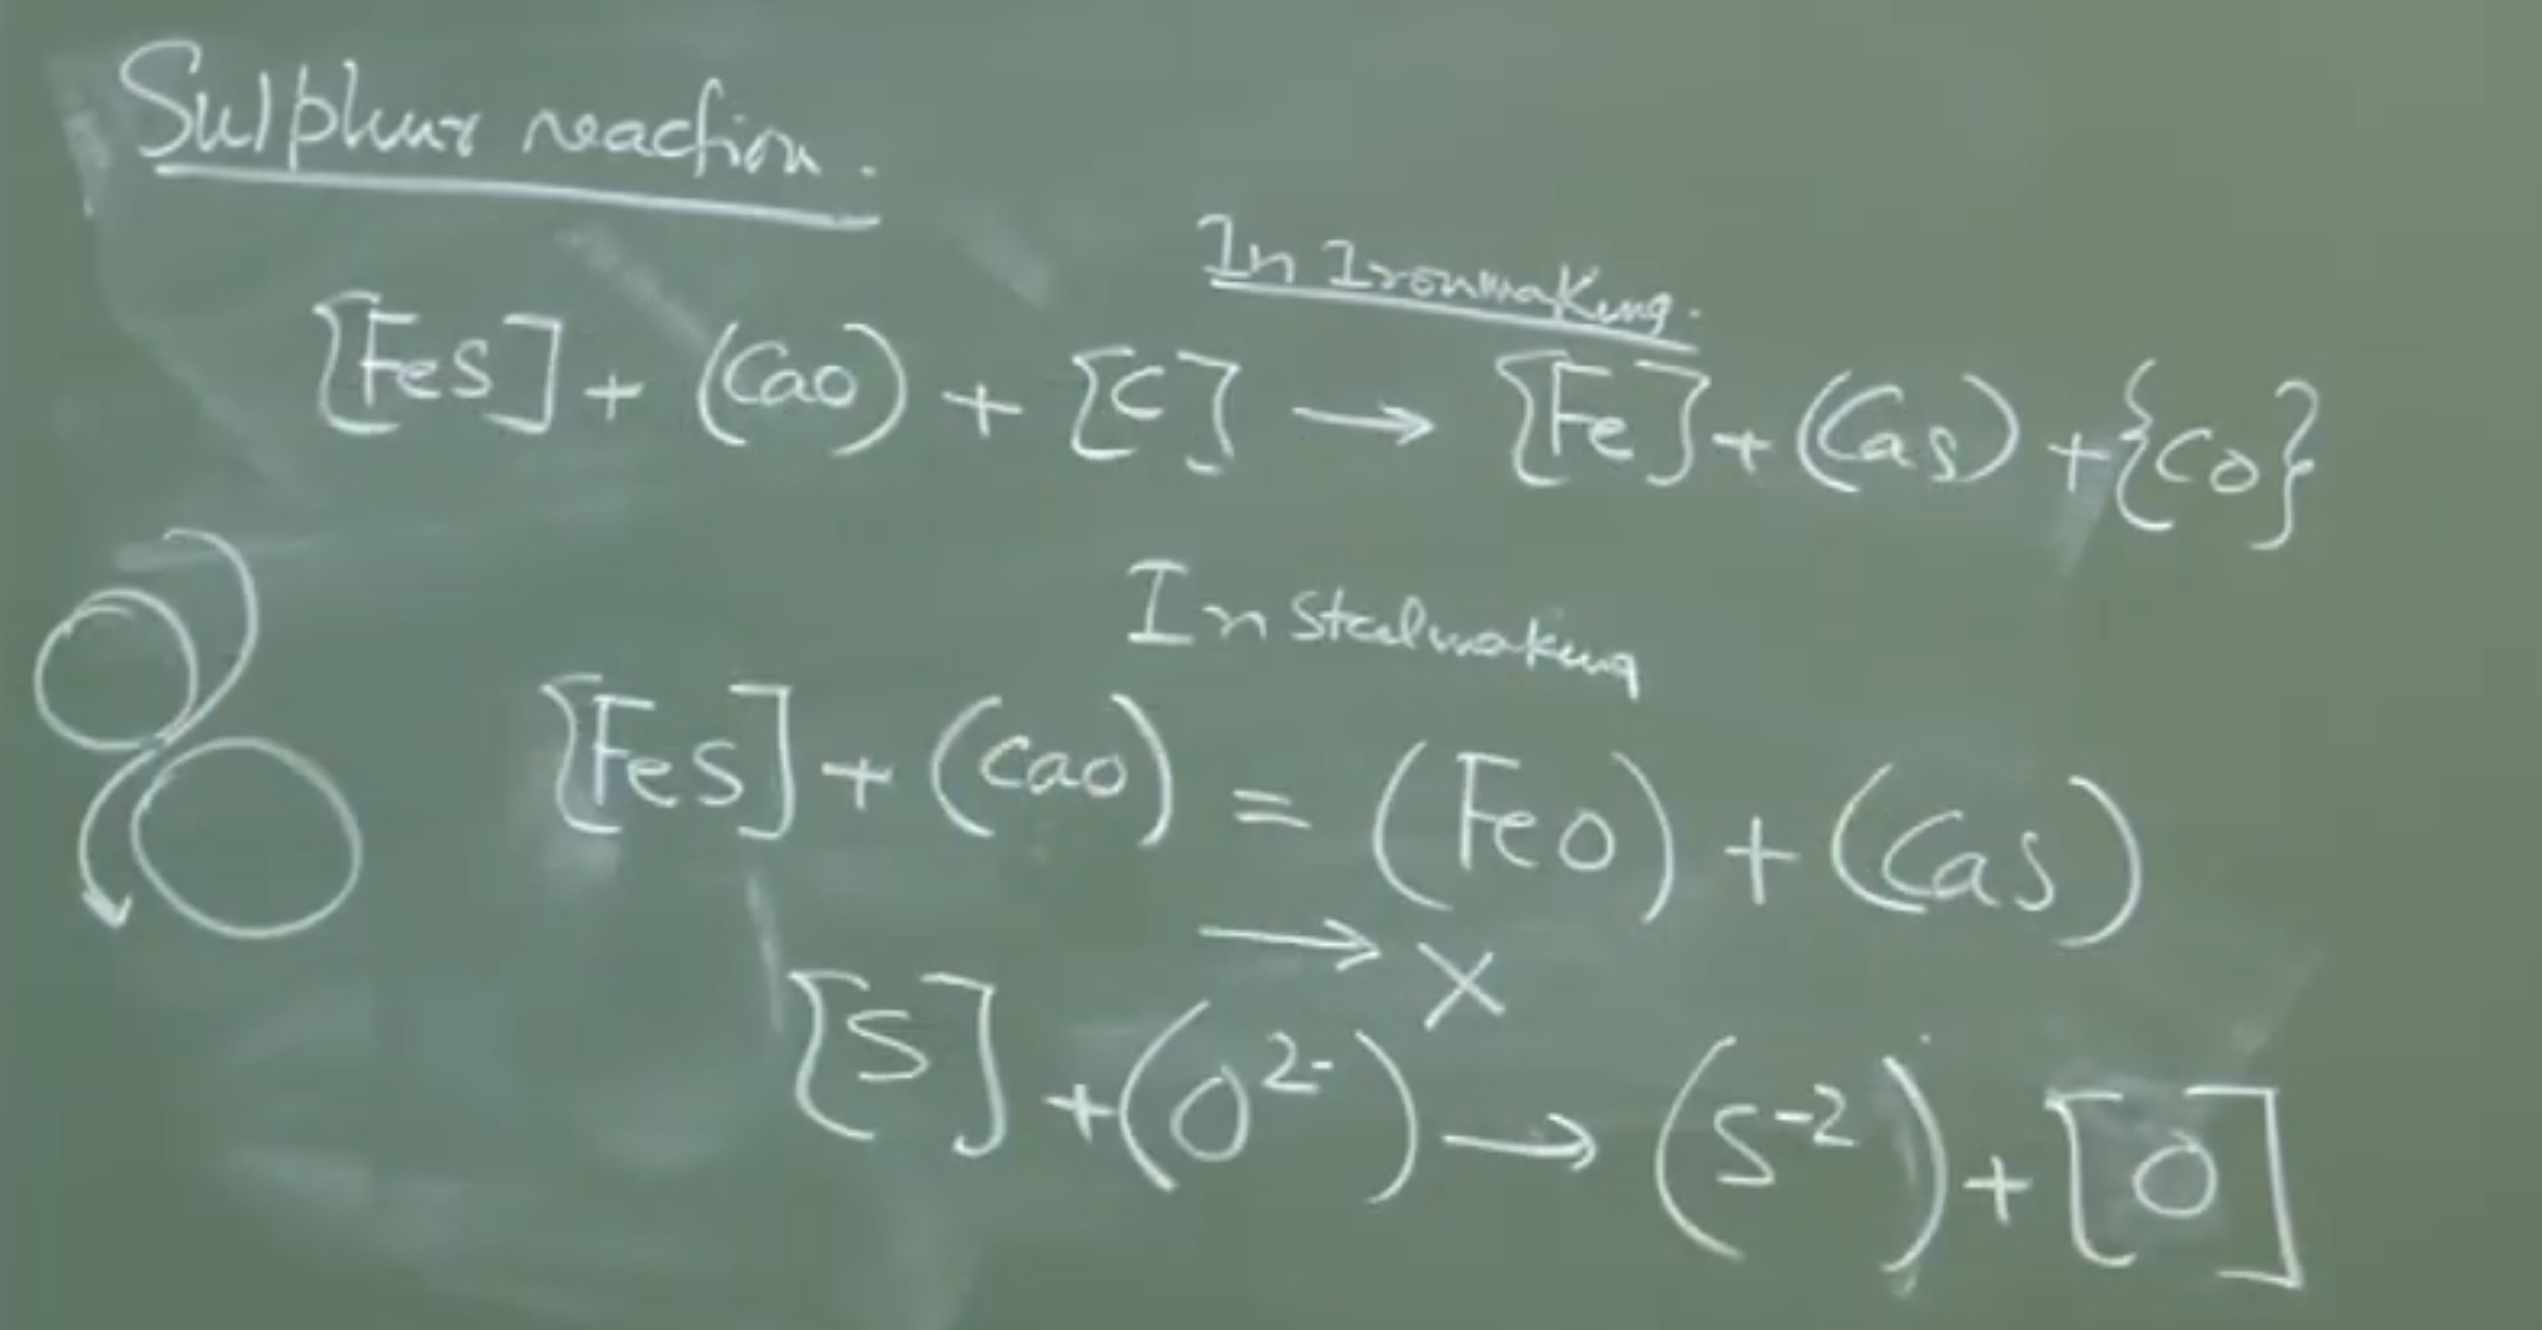 Sulphur reaction.
In Ironmaking.
[FeS] + (CaO) + [C] → [Fe] + (CaS) + {CO}
In Steelmaking
[FeS] + (CaO) = (FeO) + (CaS)
→ X
[S] + (O²⁻) → (S⁻²) + [O]